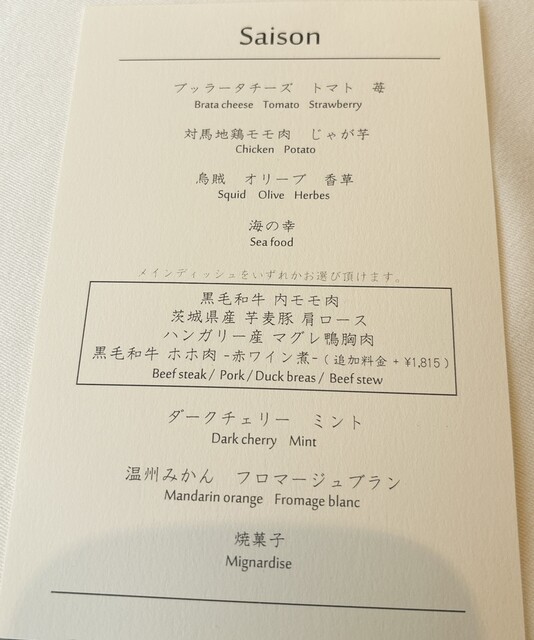 Saison
ブッラータチーズ　トマト　苺
Brata cheese Tomato Strawberry
対馬地鶏モモ肉　じゃが芋
Chicken Potato
烏賊　オリーブ　香草
Squid Olive Herbes
海の幸
Sea food
メインディッシュをいずれかお選び頂けます。
黒毛和牛 内モモ肉
茨城県産 芋麦豚 肩ロース
ハンガリー産 マグレ鴨胸肉
黒毛和牛 ホホ肉 -赤ワイン煮- ( 追加料金 + ¥1,815 )
Beef steak / Pork / Duck breas / Beef stew
ダークチェリー　ミント
Dark cherry Mint
温州みかん　フロマージュブラン
Mandarin orange Fromage blanc
焼菓子
Mignardise